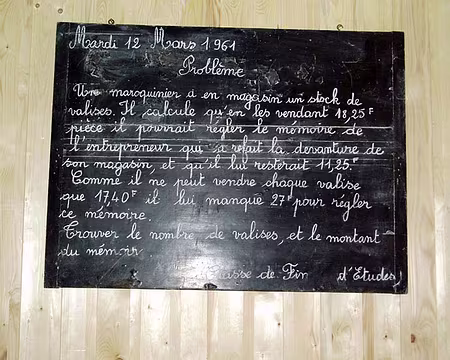 Mardi 12 Mars 1961
Problème
Une maroquinier a en magasin un stock de
valises. Il calcule qu'en les vendant 18,25 F
pièce il pourrait régler le mémoire de
l'entrepreneur qui a refait la devanture de
son magasin, et qu'il lui resterait 11,25 F
Comme il ne peut vendre chaque valise
que 17,40 F il lui manque 27 F pour régler
ce mémoire.
Trouver le nombre de valises, et le montant
du mémoir
Classe de Fin d'Etudes